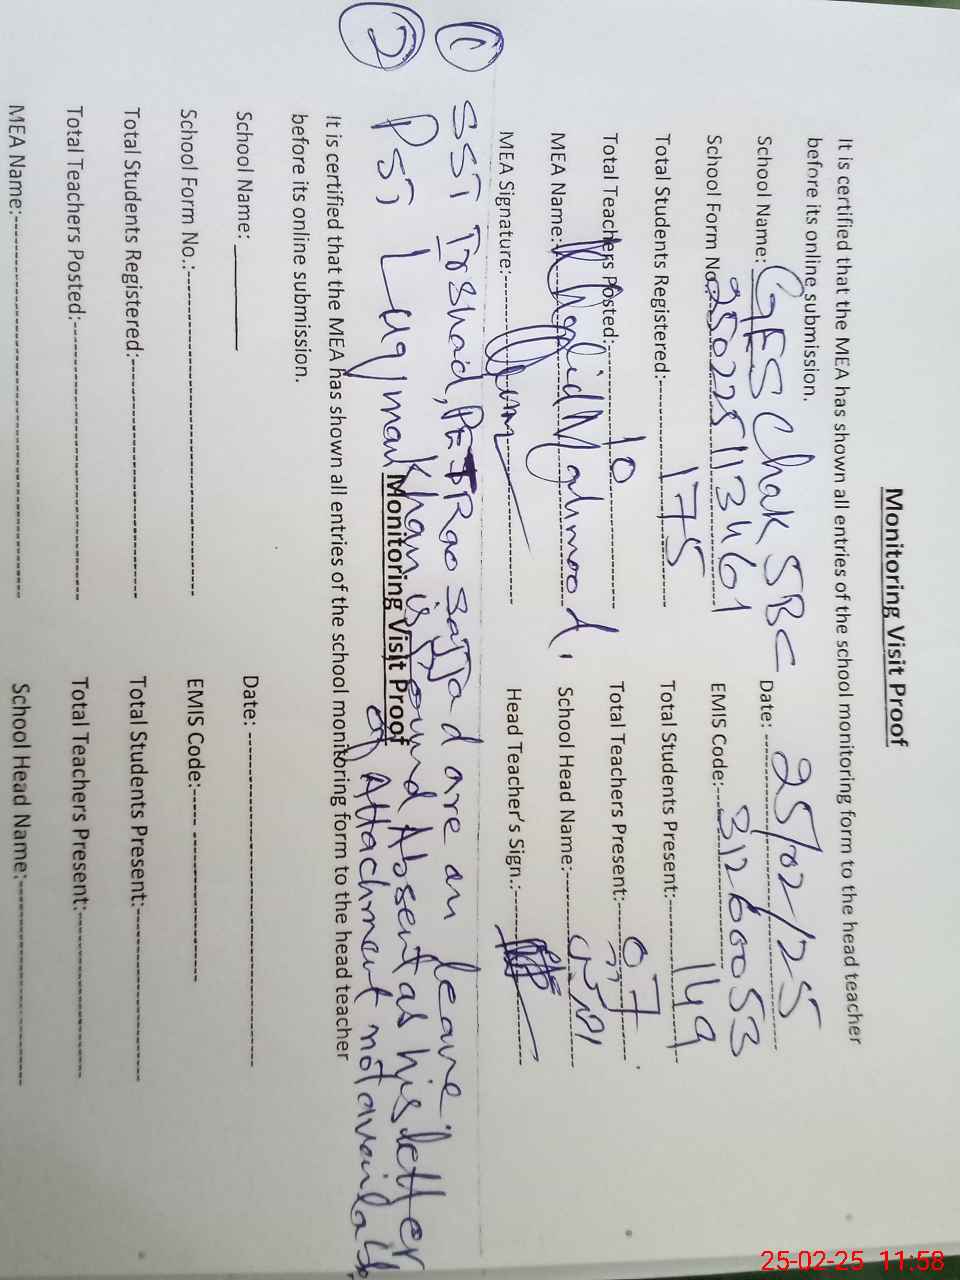 Monitoring Visit Proof
It is certified that the MEA has shown all entries of the school monitoring form to the head teacher
before its online submission.
School Name: GES Chak 5BC Date: 25/02/25
School Form No. 250225113461 EMIS Code: 31260053
Total Students Registered: 175 Total Students Present: 149
Total Teachers Posted: 10 Total Teachers Present: 07
MEA Name: Khalid Mahmood, School Head Name:
MEA Signature: Head Teacher's Sign.:
① SST Irshad, PET Rao Sajjad are on leave.
② PST Luqman Khan is found Absent as his letter
of Attachment not available
Monitoring Visit Proof
It is certified that the MEA has shown all entries of the school monitoring form to the head teacher
before its online submission.
School Name: Date:
School Form No.: EMIS Code:
Total Students Registered: Total Students Present:
Total Teachers Posted: Total Teachers Present:
MEA Name: School Head Name:
25-02-25 11:58